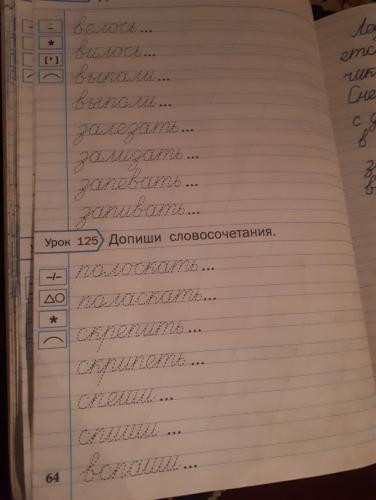 велось...
вилось...
выпали...
выполи...
залезать...
зализать...
запевать...
запивать...
Урок 125 Допиши словосочетания.
полоскать...
поласкать...
скрепить...
скрипеть...
спеши...
спиши...
вспаши...
64